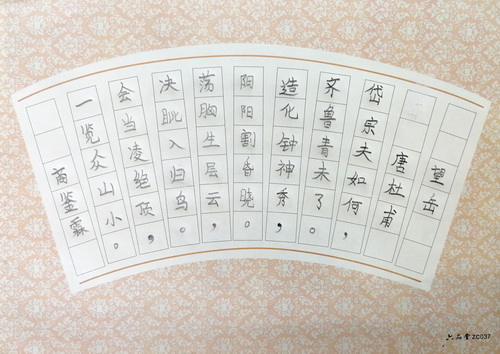 望岳
唐杜甫
岱宗夫如何，
齐鲁青未了。
造化钟神秀，
阴阳割昏晓。
荡胸生层云，
决眦入归鸟。
会当凌绝顶，
一览众山小。
商鉴霖
六品堂 ZC037